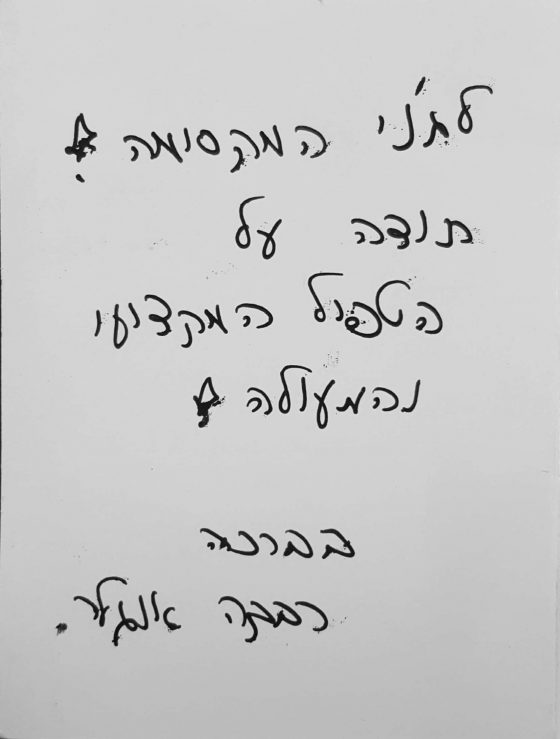 לתג'ני המקסימה!
תודה על
הטפול המקצועי
והמעולה!
בברכה
רבקה אנגלר.